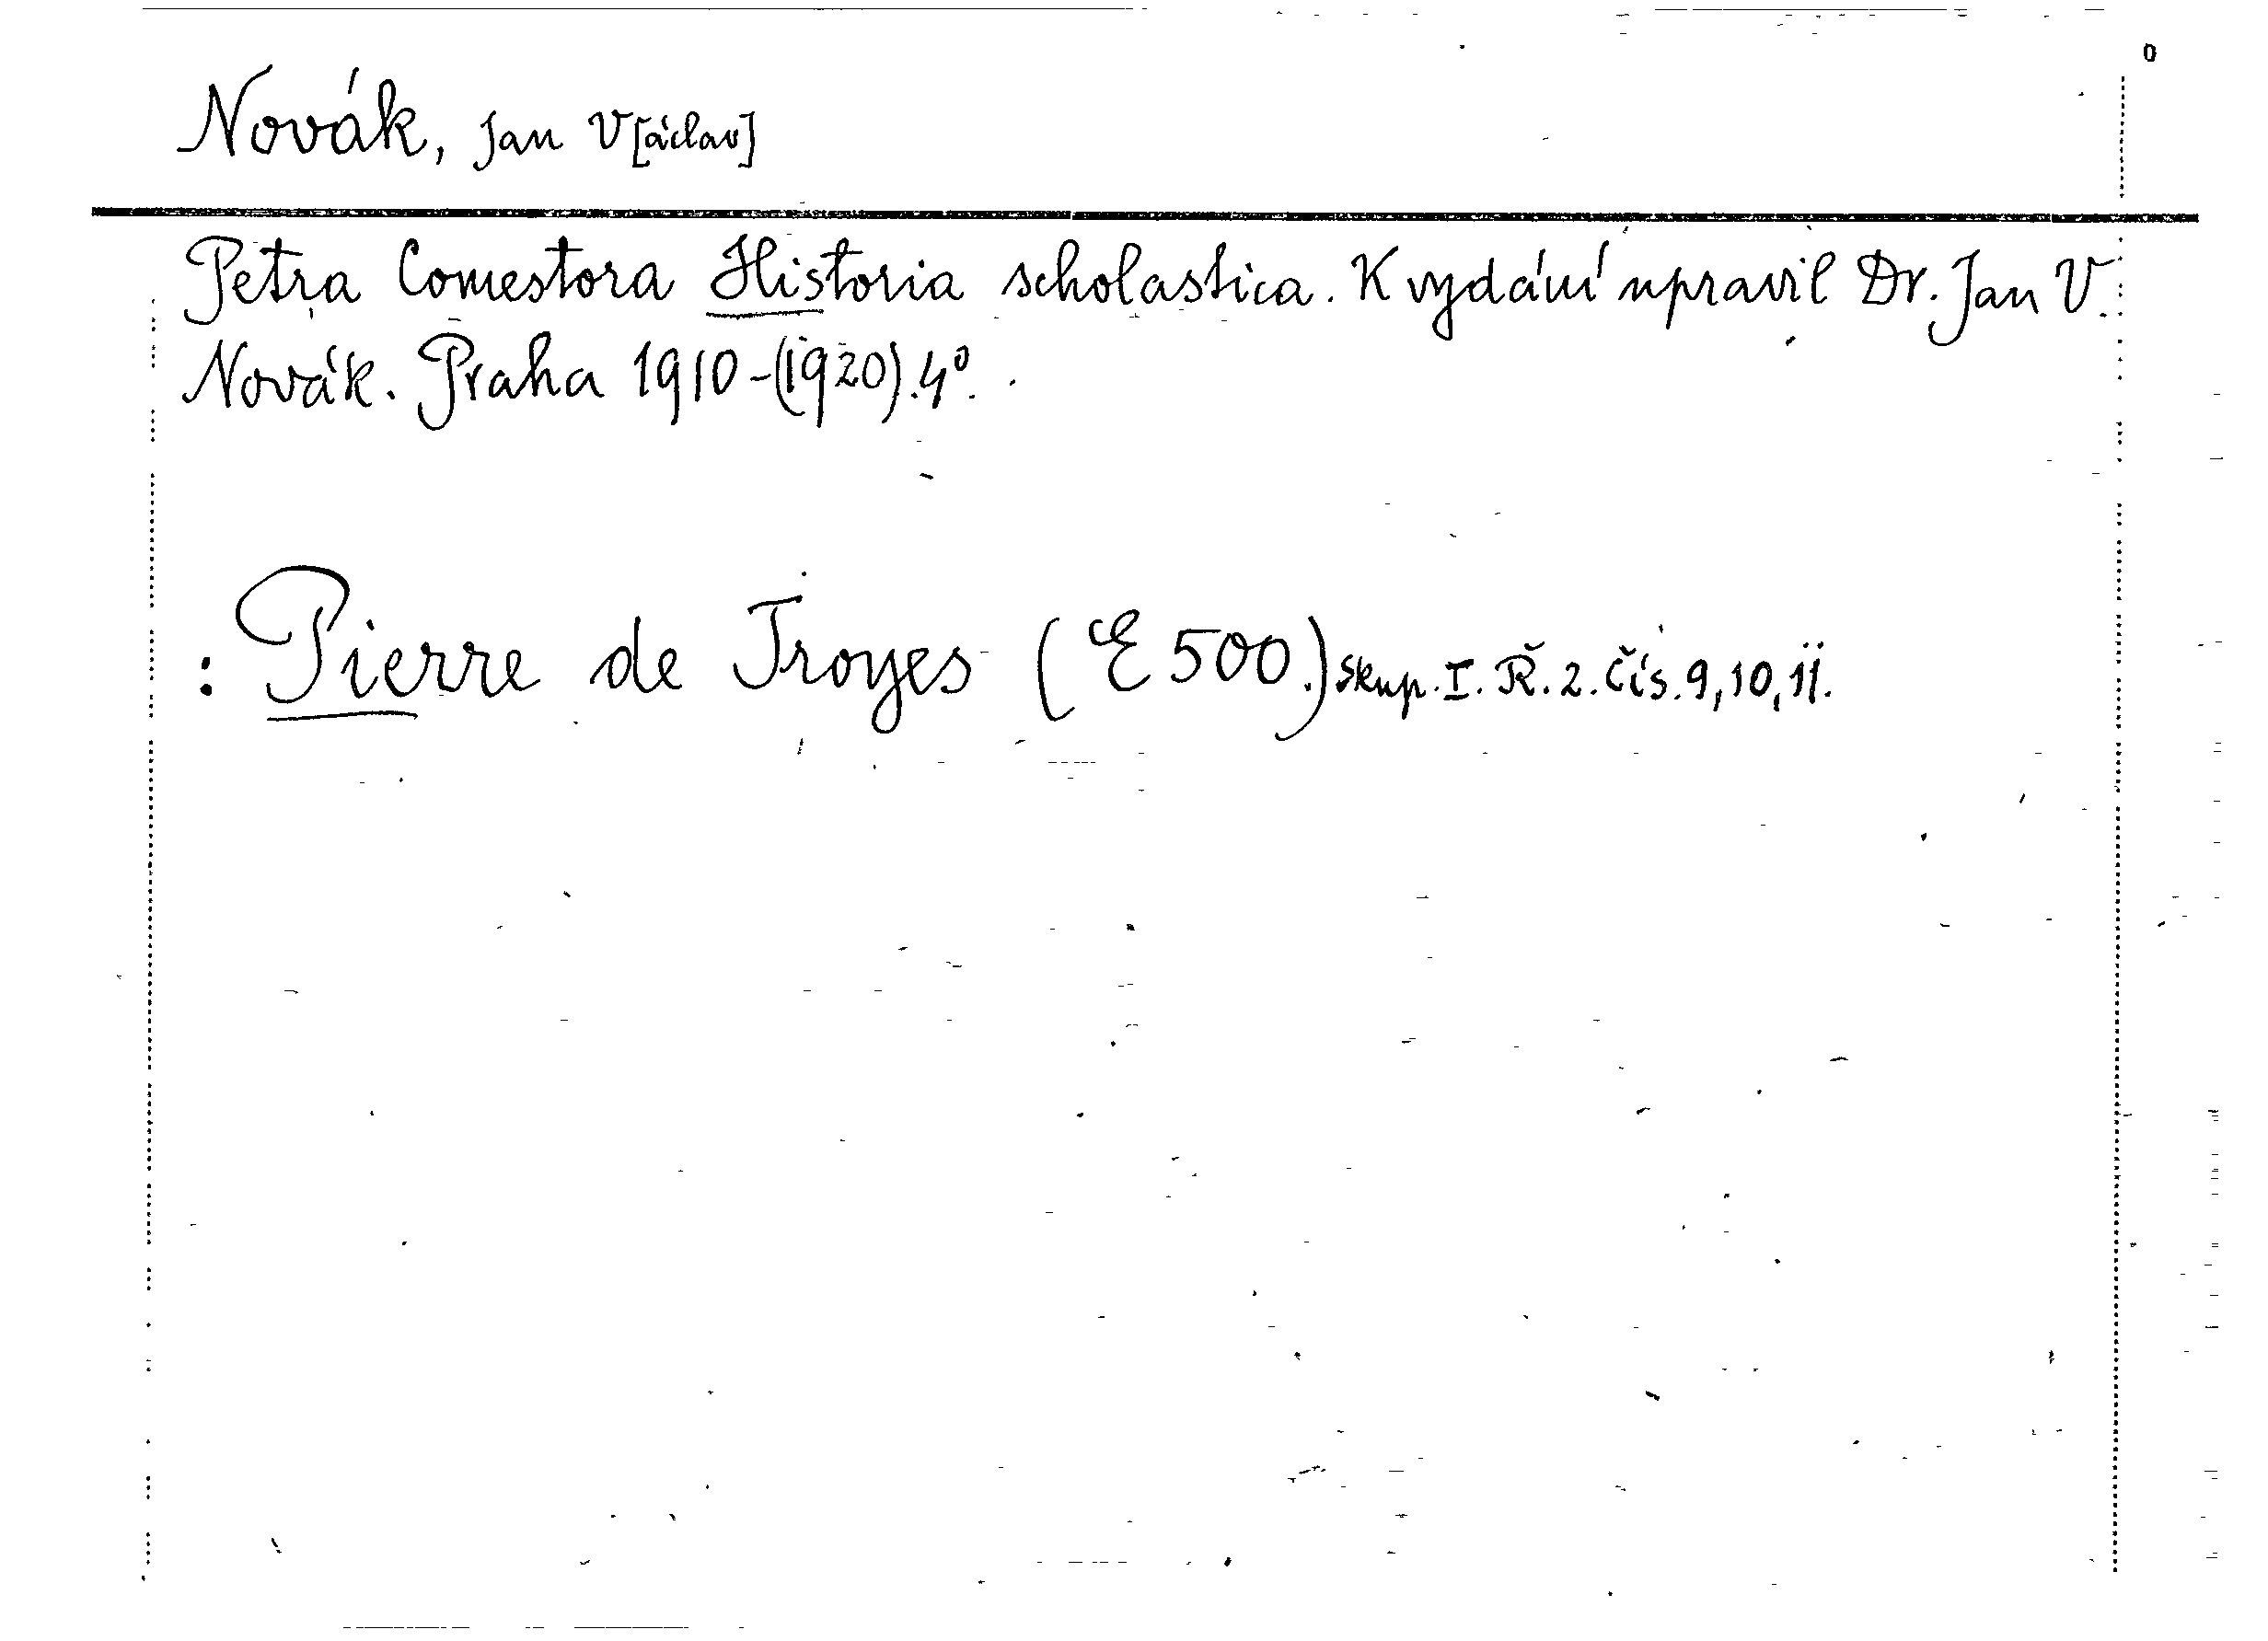 0
Novák, Jan V[áclav]
Petra Comestora Historia scholastica. K vydání upravil Dr. Jan V.
Novák. Praha 1910-(1920). 4°.
: Pierre de Troyes (E 500.) skup. I. Ř. 2. čís. 9, 10, 11.